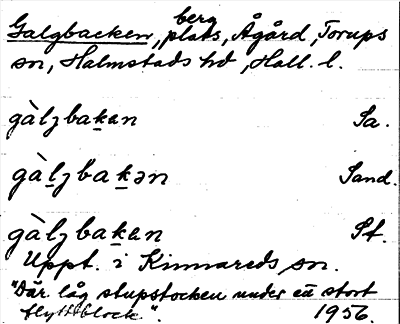 Galgbacken, berg, plats, Ågård, Torups
sn, Halmstads hd, Hall. l.
gàlʒbakan Sa.
gàlʒbakən Sand.
gàlʒbakan St.
Uppt. i Kinnareds sn.
"Där låg stupstocken under ett stort
flyttblock". 1956.